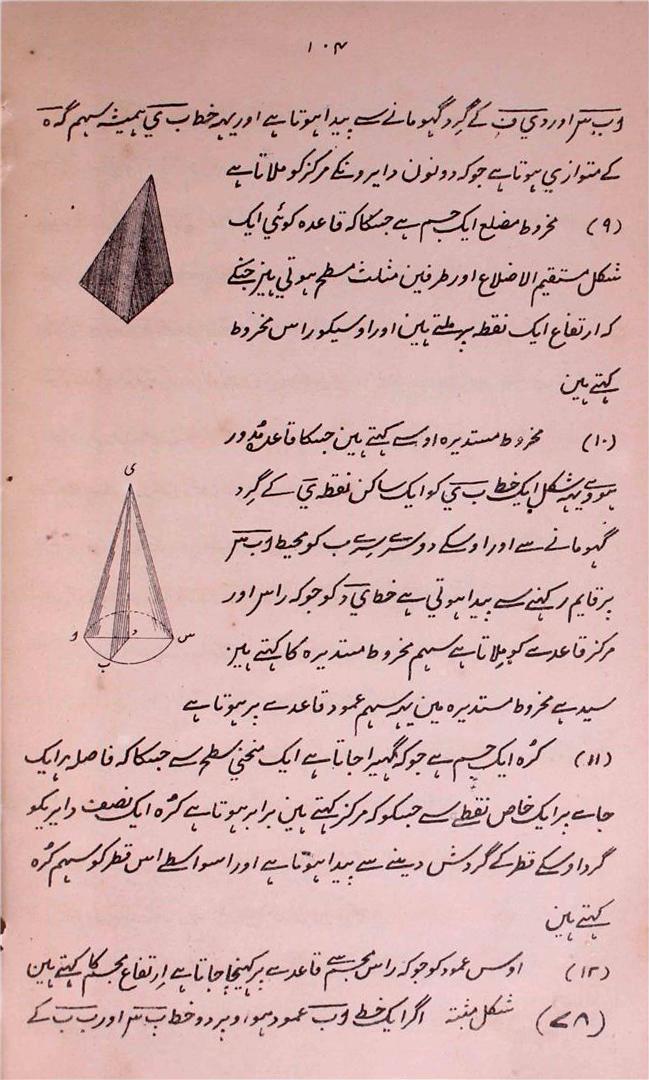 ۱۰۴
اب س اور دی ف کے گرد گہومانے سے پیدا ہوتا ہے اور یہہ خط اب ی ہمیشہ سہم گہ ہ
کے متوازی ہوتا ہے جو کہ دونون دایرونکے مرکز کو ملاتا ہے
(۹) مخروط مضلع ایک جسم ہے جسکا کہ قاعدہ کوئی ایک
شکل مستقیم الاضلاع اور طرفین مثلث مسطح ہوتی ہین جنکے
کہ ارتفاع ایک نقطہ پر ملتے ہین اور اوسیکو راس مخروط
کہتے ہین
(۱۰) مخروط مستدیرہ اوسے کہتے ہین جسکا قاعدہ مُدور
ہووے یہہ شکل ایک خط ب ی کو ایک ساکن نقطہ ی کے گرد
گہومانے سے اور اوسکے دوسرے سرے ب کو محیط اب س
پر قایم رکہنے سے پیدا ہوتی ہے خط ی د کو جو کہ راس اور
مرکز قاعدے کو ملاتا ہے سہم مخروط مستدیرہ کا کہتے ہین
سیدہے مخروط مستدیرہ مین یہہ سہم عمود قاعدے پر ہوتا ہے
(۱۱) کُرہ ایک جسم ہے جو کہ گہیرا جاتا ہے ایک منحنی سطح سے جسکا کہ فاصلہ ہر ایک
جاے پر ایک خاص نقطے سے جسکو کہ مرکز کہتے ہین برابر ہوتا ہے کُرہ ایک نصف دایریکو
گرد اوسکے قطر کے گردش دینے سے پیدا ہوتا ہے اور اسواسطے اس قطر کو سہم کُرہ
کہتے ہین
(۱۲) اوس عمود کو جو کہ راس مجسم سے قاعدے پر کہینچا جاتا ہے اِرتفاع مجسم کا کہتے ہین
(۷۸) شکل مثبتہ اگر ایک خط اب عمود ہو اوپر دو خط ب س اور ب ب کے
ی
ا
د
س
ب